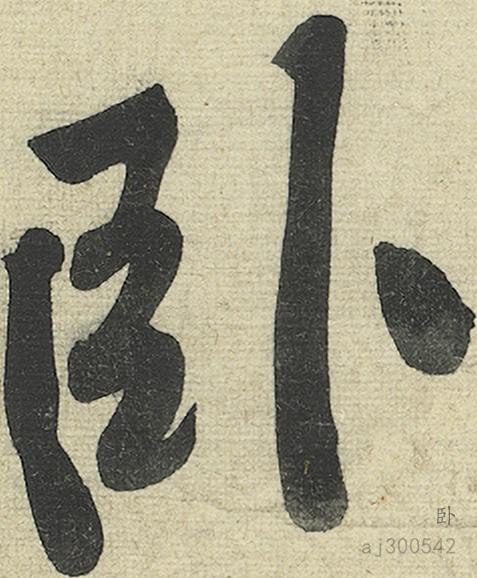 卧
卧
aj300542